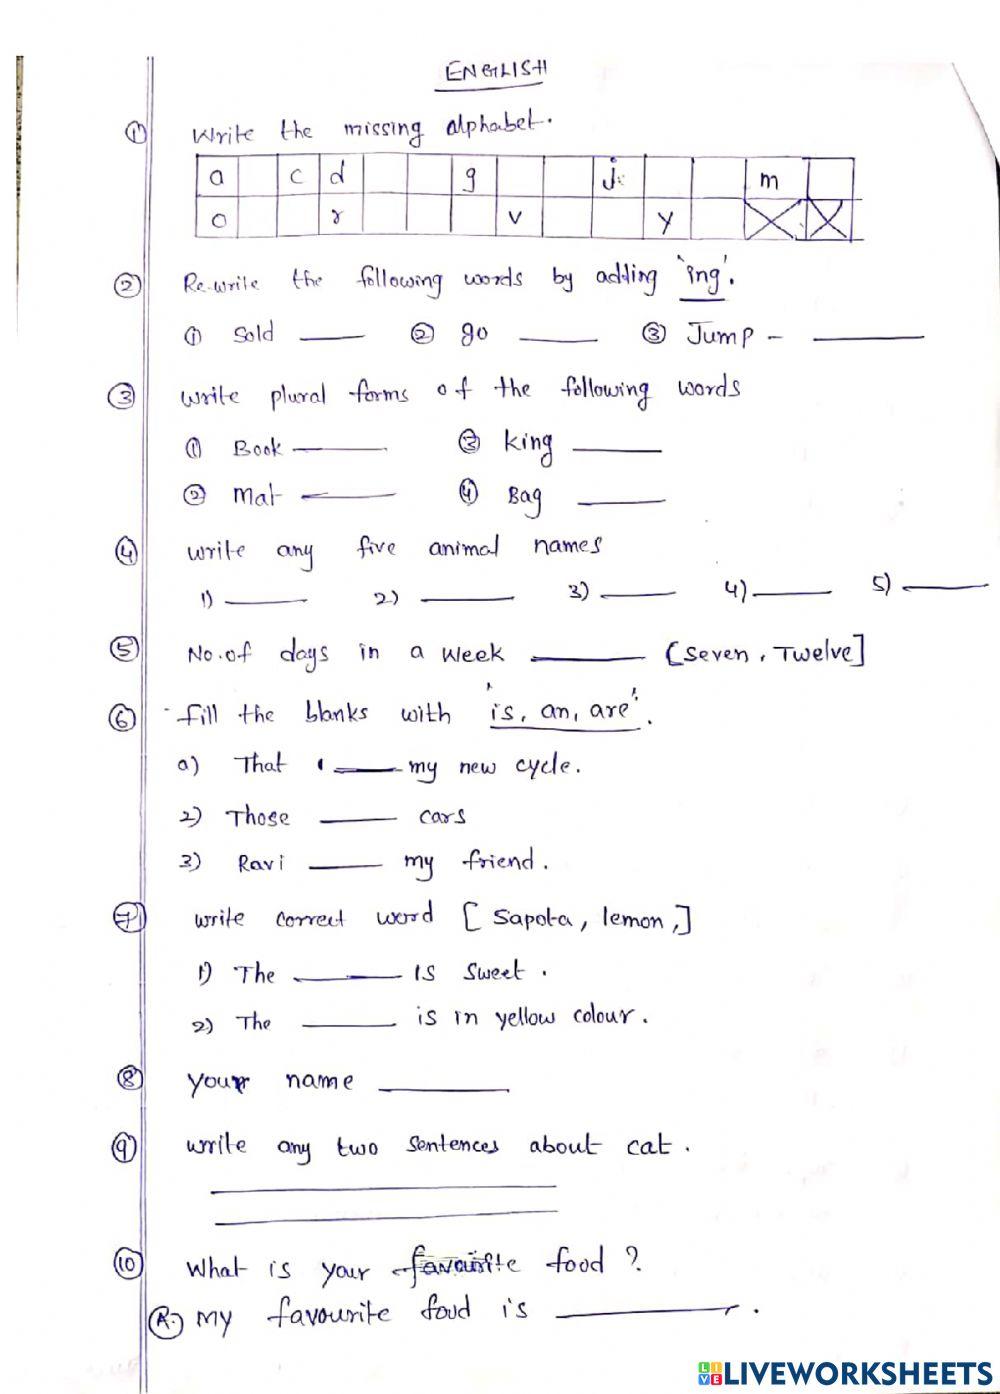 ENGLISH
① Write the missing alphabet.
a c d g j m
o r v y
② Re-write the following words by adding 'ing'.
① Sold ② go ③ Jump -
③ Write plural forms of the following words
① Book ③ king
② Mat ④ Bag
④ Write any five animal names
1) 2) 3) 4) 5)
⑤ No. of days in a week [Seven, Twelve]
⑥ Fill the blanks with 'is, an, are'.
a) That my new cycle.
2) Those cars
3) Ravi my friend.
⑦ Write correct word [Sapota, lemon,]
1) The is sweet.
2) The is in yellow colour.
⑧ your name
⑨ Write any two sentences about cat.
⑩ What is your favourite food?
A. My favourite food is .
LIVEWORKSHEETS